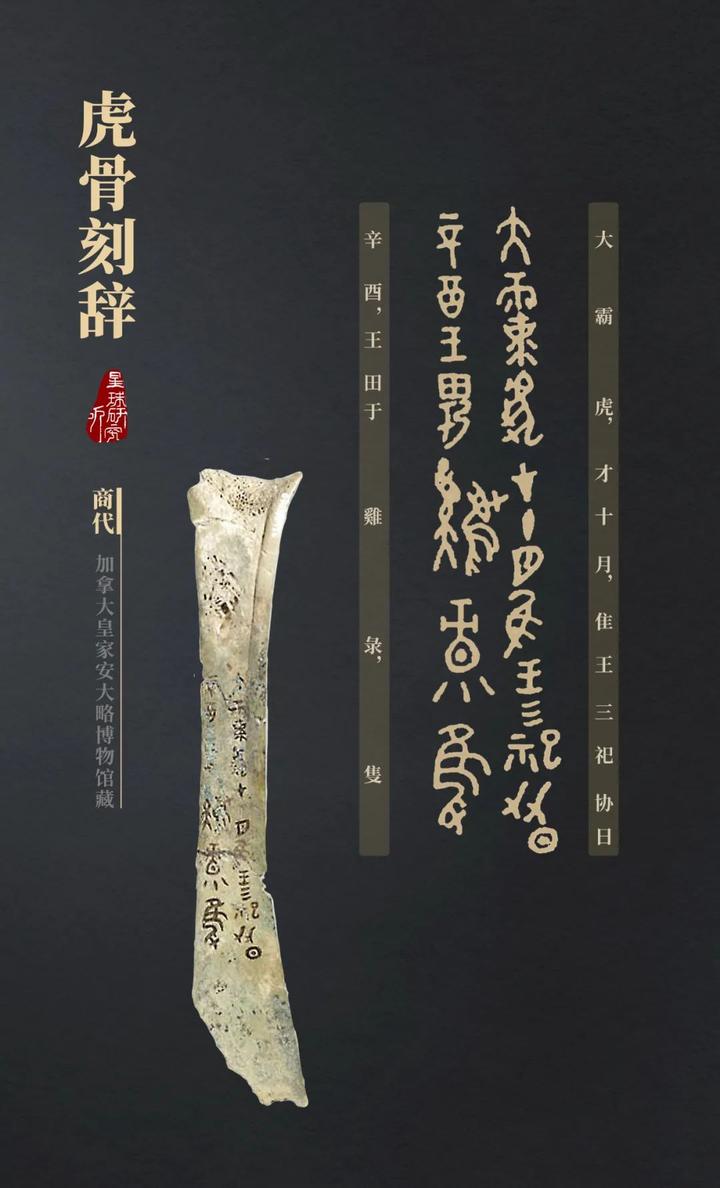 虎骨刻辞
星球研究所
商代
加拿大皇家安大略博物馆藏
辛酉，王田于雞彔，隻
大霸虎，才十月，隹王三祀协日